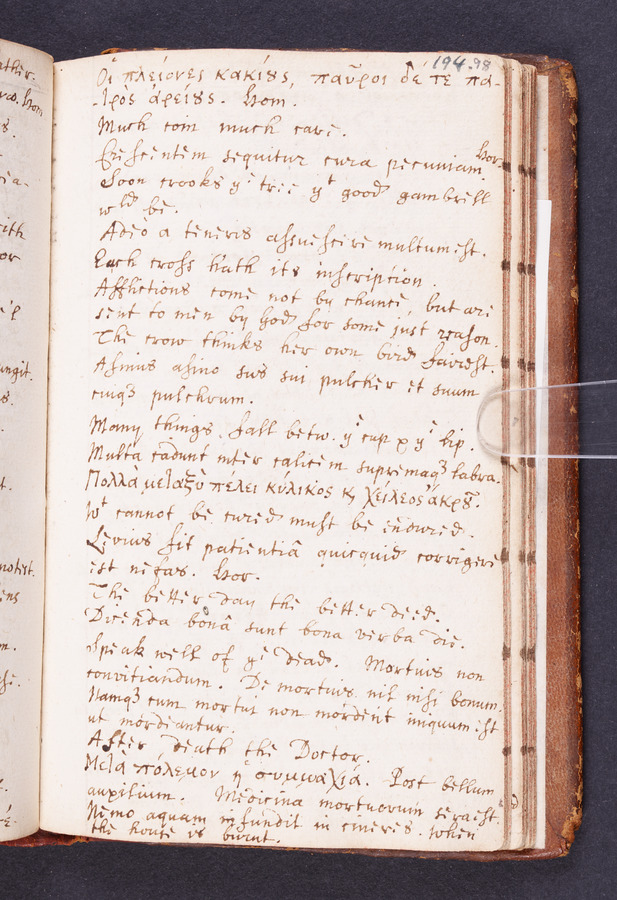 194. 98
Οἱ πλείονες κακίȣς, παῦροι δέ τε πα-
-τρὸς ἀρείȣς. Hom.
Much coin much care.
Crescentem sequitur cura pecuniam. Hor.
Soon crooks yᵉ tree yᵗ good gambrell
wᵈ be.
Adeo a teneris assuescere multum est.
Each cross hath its inscription.
Afflictions come not by chance, but are
sent to men by God for some just reason.
The crow thinks her own bird fairest.
Asinus asino sus sui pulcher et suum
cuiqꝫ pulchrum.
Many things fall betw. yᵉ cup & yᵉ lip.
Multa cadunt inter calicem supremaqꝫ labra.
Πολλὰ μεταξὺ πελει κύλικος ϗ χείλεος ἄκρȣ.
Wᵗ cannot be cured must be endured.
Levius fit patientiâ quicquid corrigere
est nefas. Hor.
The better day the better deed.
Dicenda bonâ sunt bona verba die.
Speak well of yᵉ dead. Mortuis non
convitiandum. De mortuis nil nisi bonum.
Namqꝫ cum mortui non mordent iniquum est
ut mordeantur.
After death the Doctor.
Μετὰ πόλεμον ἡ συμμαχία. Post bellum
auxilium. Medicina mortuorum sera est.
Nemo aquam infundit in cineres. When
the house is burnt.